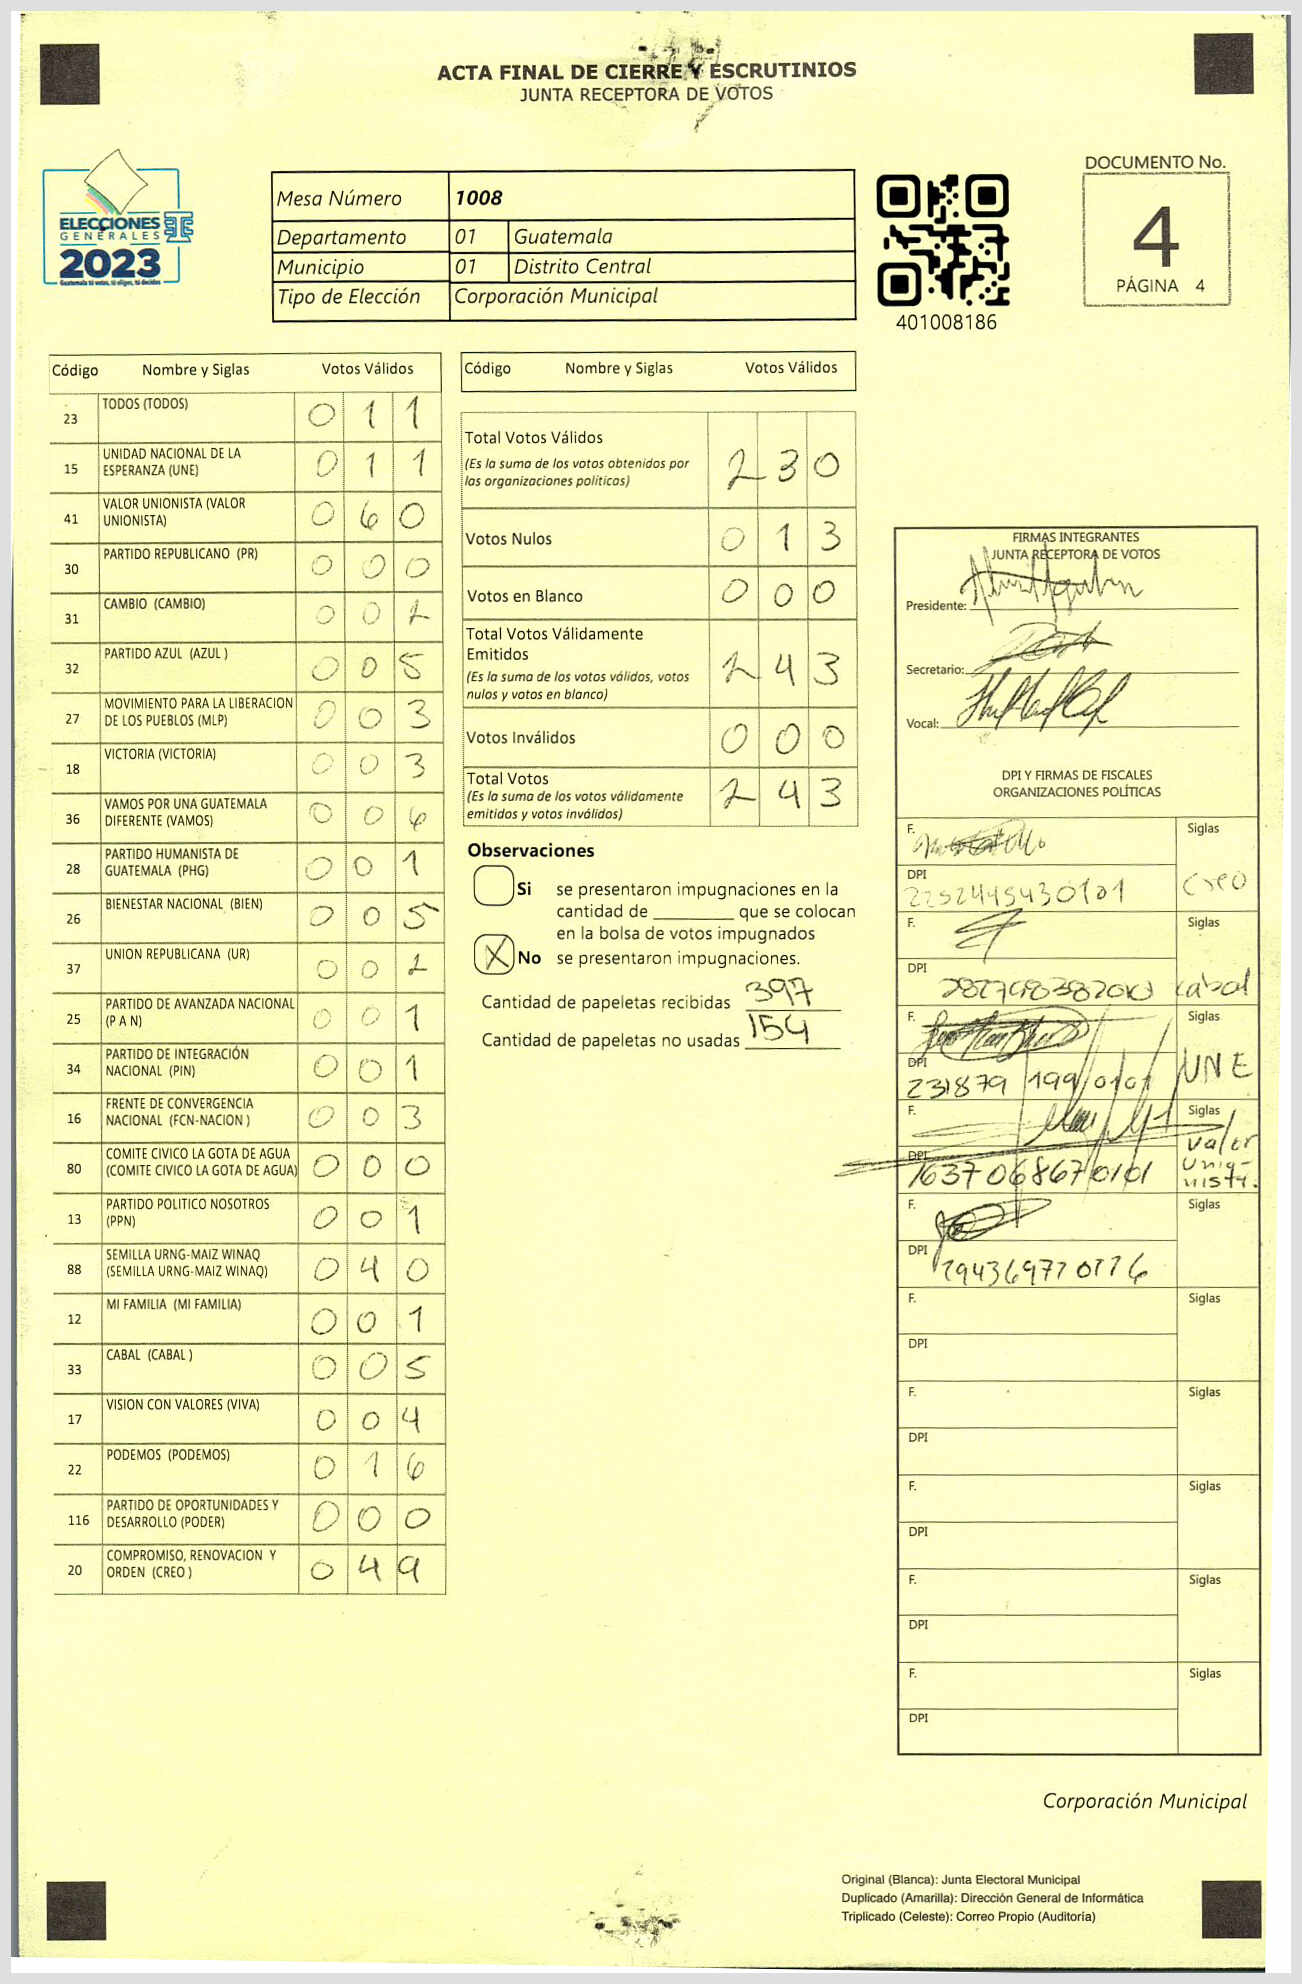 ACTA FINAL DE CIERRE Y ESCRUTINIOS
JUNTA RECEPTORA DE VOTOS
ELECCIONES
GENERALES
2023
Guatemala tú votas, tú eliges, tú decides
Mesa Número 1008
Departamento 01 Guatemala
Municipio 01 Distrito Central
Tipo de Elección Corporación Municipal
401008186
DOCUMENTO No.
4
PÁGINA 4
Código Nombre y Siglas Votos Válidos
23 TODOS (TODOS) 0 1 1
15 UNIDAD NACIONAL DE LA
ESPERANZA (UNE) 0 1 1
41 VALOR UNIONISTA (VALOR
UNIONISTA) 0 6 0
30 PARTIDO REPUBLICANO (PR) 0 0 0
31 CAMBIO (CAMBIO) 0 0 2
32 PARTIDO AZUL (AZUL ) 0 0 5
27 MOVIMIENTO PARA LA LIBERACION
DE LOS PUEBLOS (MLP) 0 0 3
18 VICTORIA (VICTORIA) 0 0 3
36 VAMOS POR UNA GUATEMALA
DIFERENTE (VAMOS) 0 0 6
28 PARTIDO HUMANISTA DE
GUATEMALA (PHG) 0 0 1
26 BIENESTAR NACIONAL (BIEN) 0 0 5
37 UNION REPUBLICANA (UR) 0 0 2
25 PARTIDO DE AVANZADA NACIONAL
(P A N) 0 0 1
34 PARTIDO DE INTEGRACIÓN
NACIONAL (PIN) 0 0 1
16 FRENTE DE CONVERGENCIA
NACIONAL (FCN-NACION ) 0 0 3
80 COMITE CIVICO LA GOTA DE AGUA
(COMITE CIVICO LA GOTA DE AGUA) 0 0 0
13 PARTIDO POLITICO NOSOTROS
(PPN) 0 0 1
88 SEMILLA URNG-MAIZ WINAQ
(SEMILLA URNG-MAIZ WINAQ) 0 4 0
12 MI FAMILIA (MI FAMILIA) 0 0 1
33 CABAL (CABAL ) 0 0 5
17 VISION CON VALORES (VIVA) 0 0 4
22 PODEMOS (PODEMOS) 0 1 6
116 PARTIDO DE OPORTUNIDADES Y
DESARROLLO (PODER) 0 0 0
20 COMPROMISO, RENOVACION Y
ORDEN (CREO ) 0 4 9
Código Nombre y Siglas Votos Válidos
Total Votos Válidos
(Es la suma de los votos obtenidos por
las organizaciones políticas) 2 3 0
Votos Nulos 0 1 3
Votos en Blanco 0 0 0
Total Votos Válidamente
Emitidos
(Es la suma de los votos válidos, votos
nulos y votos en blanco) 2 4 3
Votos Inválidos 0 0 0
Total Votos
(Es la suma de los votos válidamente
emitidos y votos inválidos) 2 4 3
Observaciones
Si se presentaron impugnaciones en la
cantidad de ________ que se colocan
en la bolsa de votos impugnados
X No se presentaron impugnaciones.
Cantidad de papeletas recibidas 397
Cantidad de papeletas no usadas 154
FIRMAS INTEGRANTES
JUNTA RECEPTORA DE VOTOS
Presidente:
Secretario:
Vocal:
DPI Y FIRMAS DE FISCALES
ORGANIZACIONES POLÍTICAS
F. Siglas
DPI Creo
2252445430101
F. Siglas
DPI
Cabal
F. Siglas
DPI UNE
231879 199 0101
F. Siglas
DPI Valor
1637068670101 Unio-
nista.
F. Siglas
DPI
F. Siglas
DPI
F. Siglas
DPI
F. Siglas
DPI
F. Siglas
DPI
F. Siglas
DPI
Corporación Municipal
Original (Blanca): Junta Electoral Municipal
Duplicado (Amarilla): Dirección General de Informática
Triplicado (Celeste): Correo Propio (Auditoría)